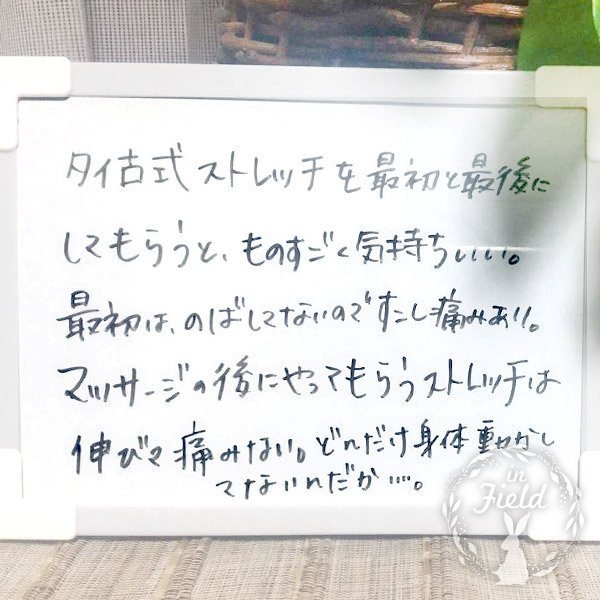 タイ古式ストレッチを最初と最後に
してもらうと、ものすごく気持ちいい。
最初は、のばしてないのですこし痛みあり。
マッサージの後にやってもらうストレッチは
伸びて痛みない。どんだけ身体動かし
てないんだか…。
in
Field